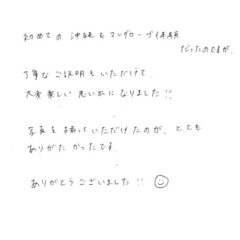 初めての沖縄&マングローブ体験
だったのですが、
丁寧なご説明もいただけて、
大変楽しい思い出になりました!!
写真を撮っていただけたのが、とても
ありがたかったです。
ありがとうございました!!